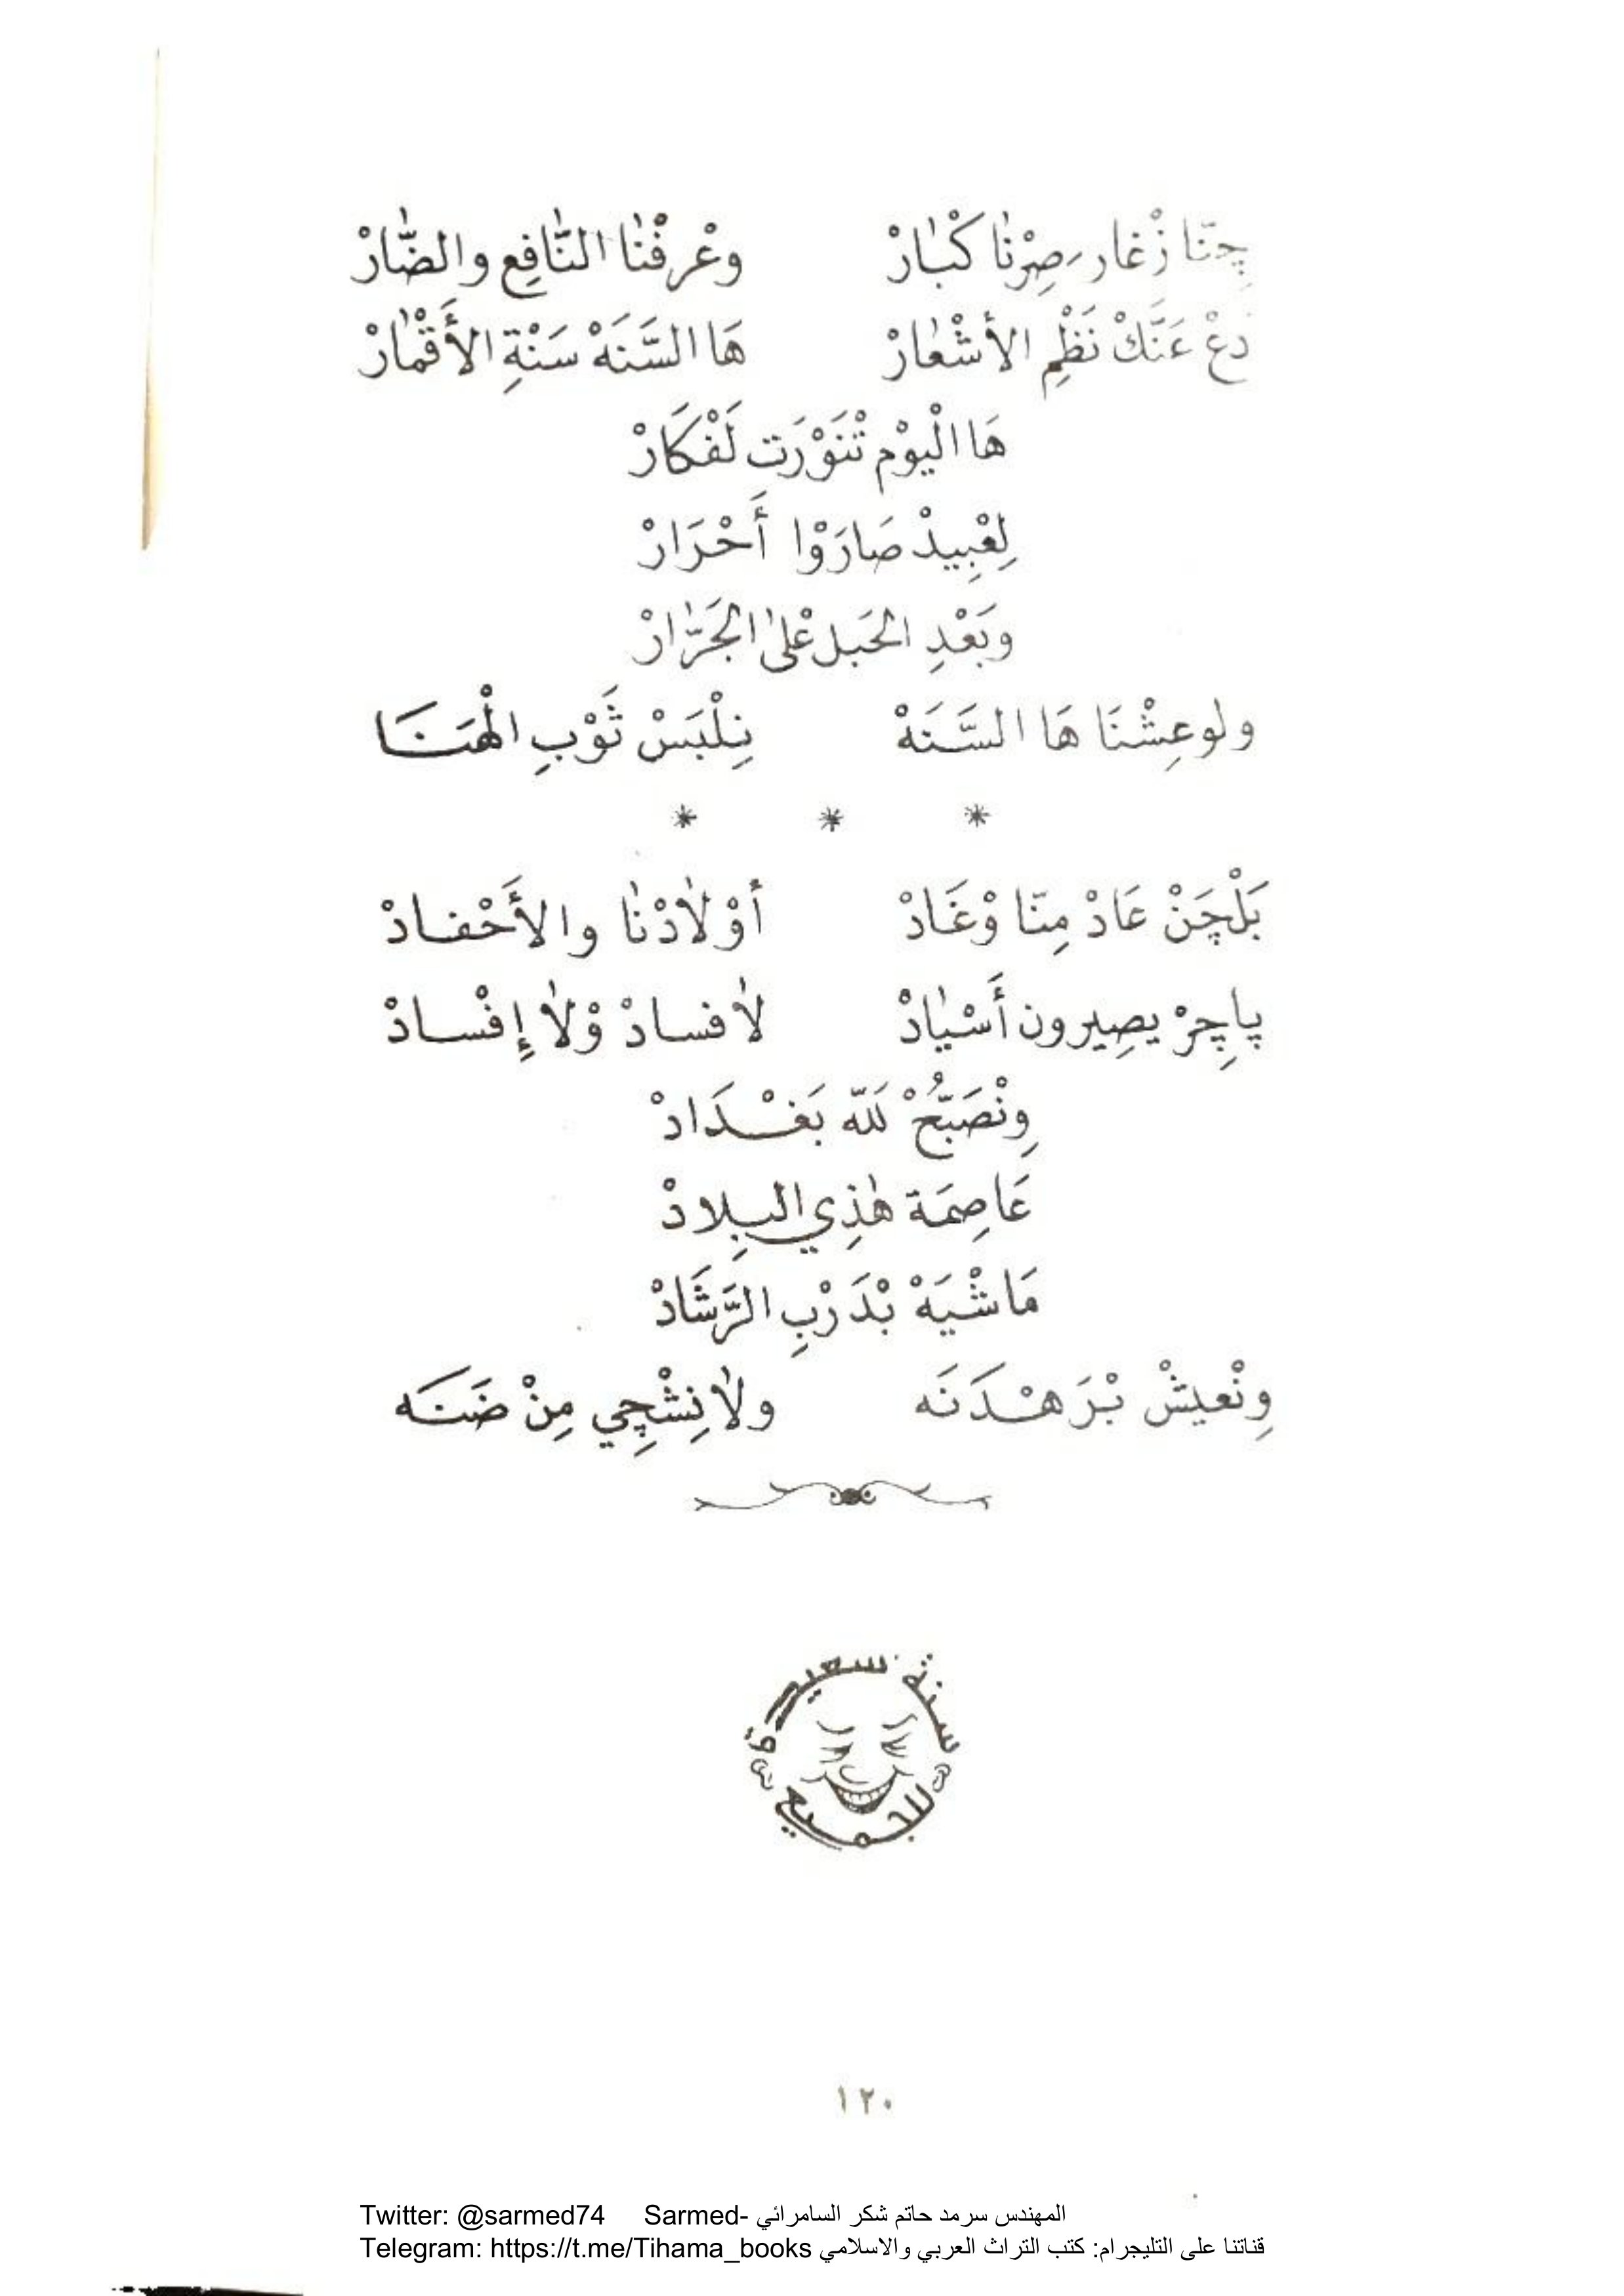 چِنّا زْغار صِرْنٰا كْبٰارْ وعْرفْنٰا النّٰافِع والضّٰارْ
دعْ عَنَّكْ نَظْمِ الأشْعٰارْ هَا السَّنَهْ سَنْةِ الأَقْمٰارْ
هَا الْيوْم تْنَوْرَت لَفْكَارْ
لِعْبِيدْ صَارَوْا أَحْرَارْ
وبَعْدِ الحَبل عْلىٰ الجَرّٰارْ
ولوعِشْنَا هَا السَّنَهْ نِلْبَسْ ثَوْبِ الْهَنَا
* * *
بَلْچَنْ عَادْ مِنّا وْغَادْ أوْلٰادْنٰا والأَحْفادْ
پاچِرْ يصِيرون أَسْيٰادْ لٰا فسادْ وْلٰا إِفْسادْ
وِنْصَبّحُْ لَلّه بَغْدَادْ
عَاصِمَة هٰذِي البِلادْ
مَاشْيَهْ بْدَرْبِ الرَّشَادْ
وِنْعيشْ بْرَهْدَنَه ولٰا نِشْچِي مِنْ ضَنَه
سنة سعيدة
للجميع
١٢٠
Twitter: @sarmed74 Sarmed- المهندس سرمد حاتم شكر السامرائي
Telegram: https://t.me/Tihama_books قناتنا على التليجرام: كتب التراث العربي والاسلامي